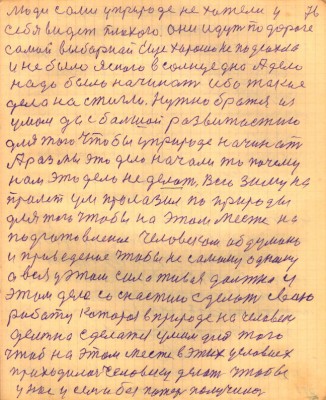 люди сами у природе не хотели у 76
себя видет плохого. Они идут по дороге
самой выбарнай еще хорошо не подхода
и не было ясного в солнце дно А дело
надо было начинать ибо такие
дела настигли. Нужно братся из
умом да с балшой развитастию
для того чтобы у природе начинат
А раз мы это дело начали то почему
нам это дело не делат. Всю зиму на
пролет ум пролазил по природы
для того чтобы на этом месте на
подготовление человеком обдумано
и проведение чтобы не самому одному
а вся у этом сило живая должна у
этом деле со снастию сделат свою
работу Которая в природе на человек
должно сделатся умом для того
чтоб на этом месте в этих условиях
приходилос человеку делат чтобы
у нас у семи без потер получилос